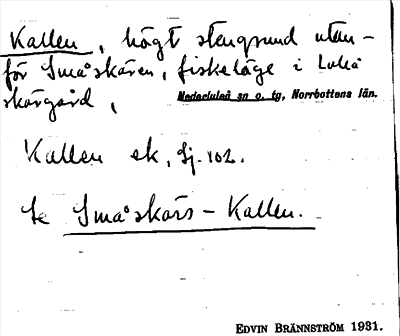 Kallen, högt stengrund utan-
för Småskären, fiskeläge i Luleå
skärgård, Nederluleå sn o. tg, Norrbottens län.
Kallen ek, Sj. 102.
Se Småskärs-Kallen.
EDVIN BRÄNNSTRÖM 1931.